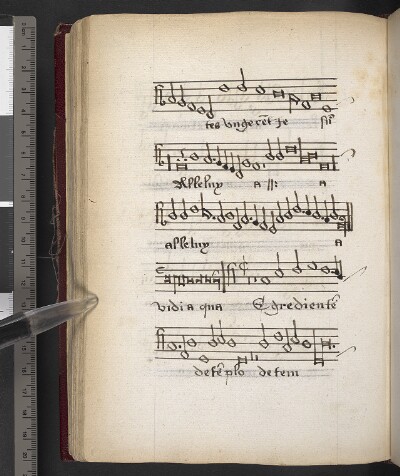 tes ungerēt Je sū
Alleluy a :||: a
alleluy a
vidi a qua Egredientē
de tēplo de tem